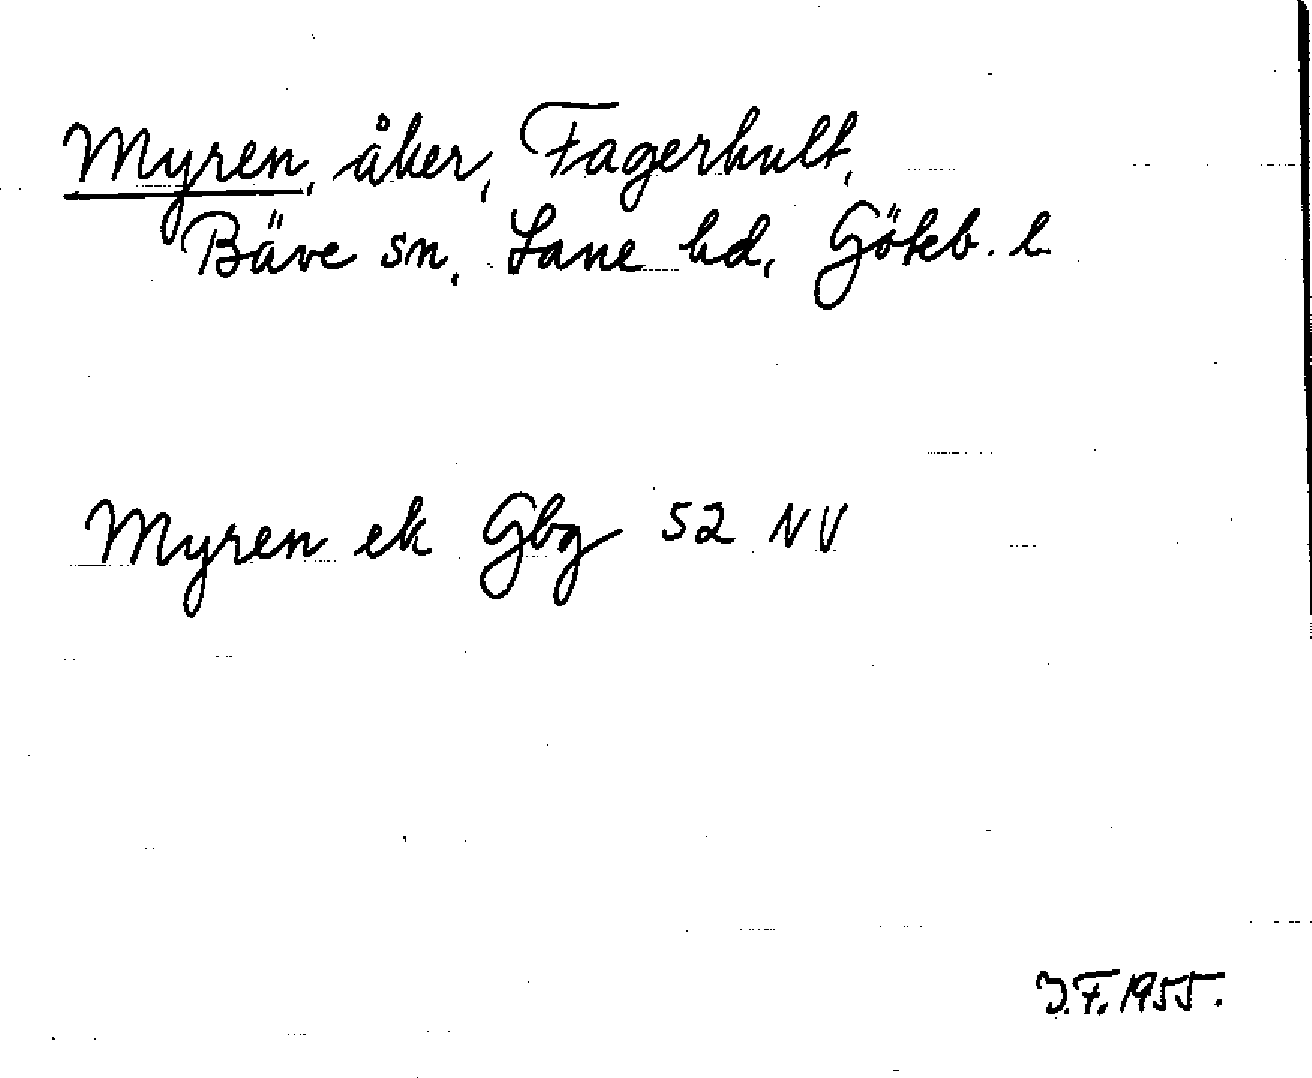 Myren, åker, Fagerhult,
Bäve sn, Lane hd, Göteb. l
Myren ek Gbg 52 NV
J.F. 1955.